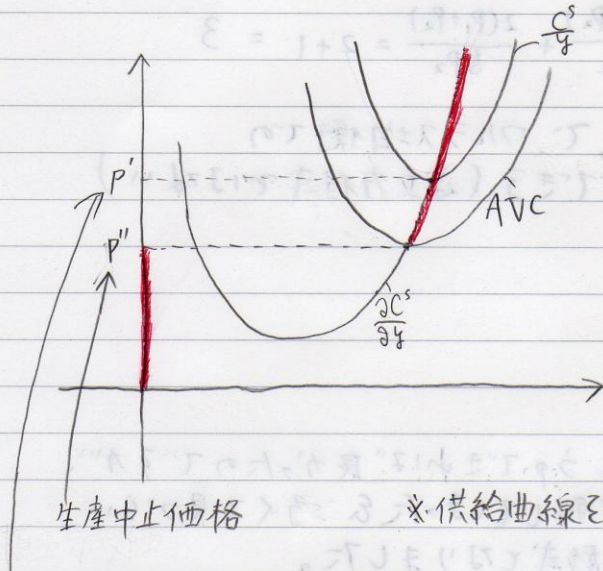 C^s/y
P'
P''
AVC
∂C^s/∂y
生産中止価格
※供給曲線